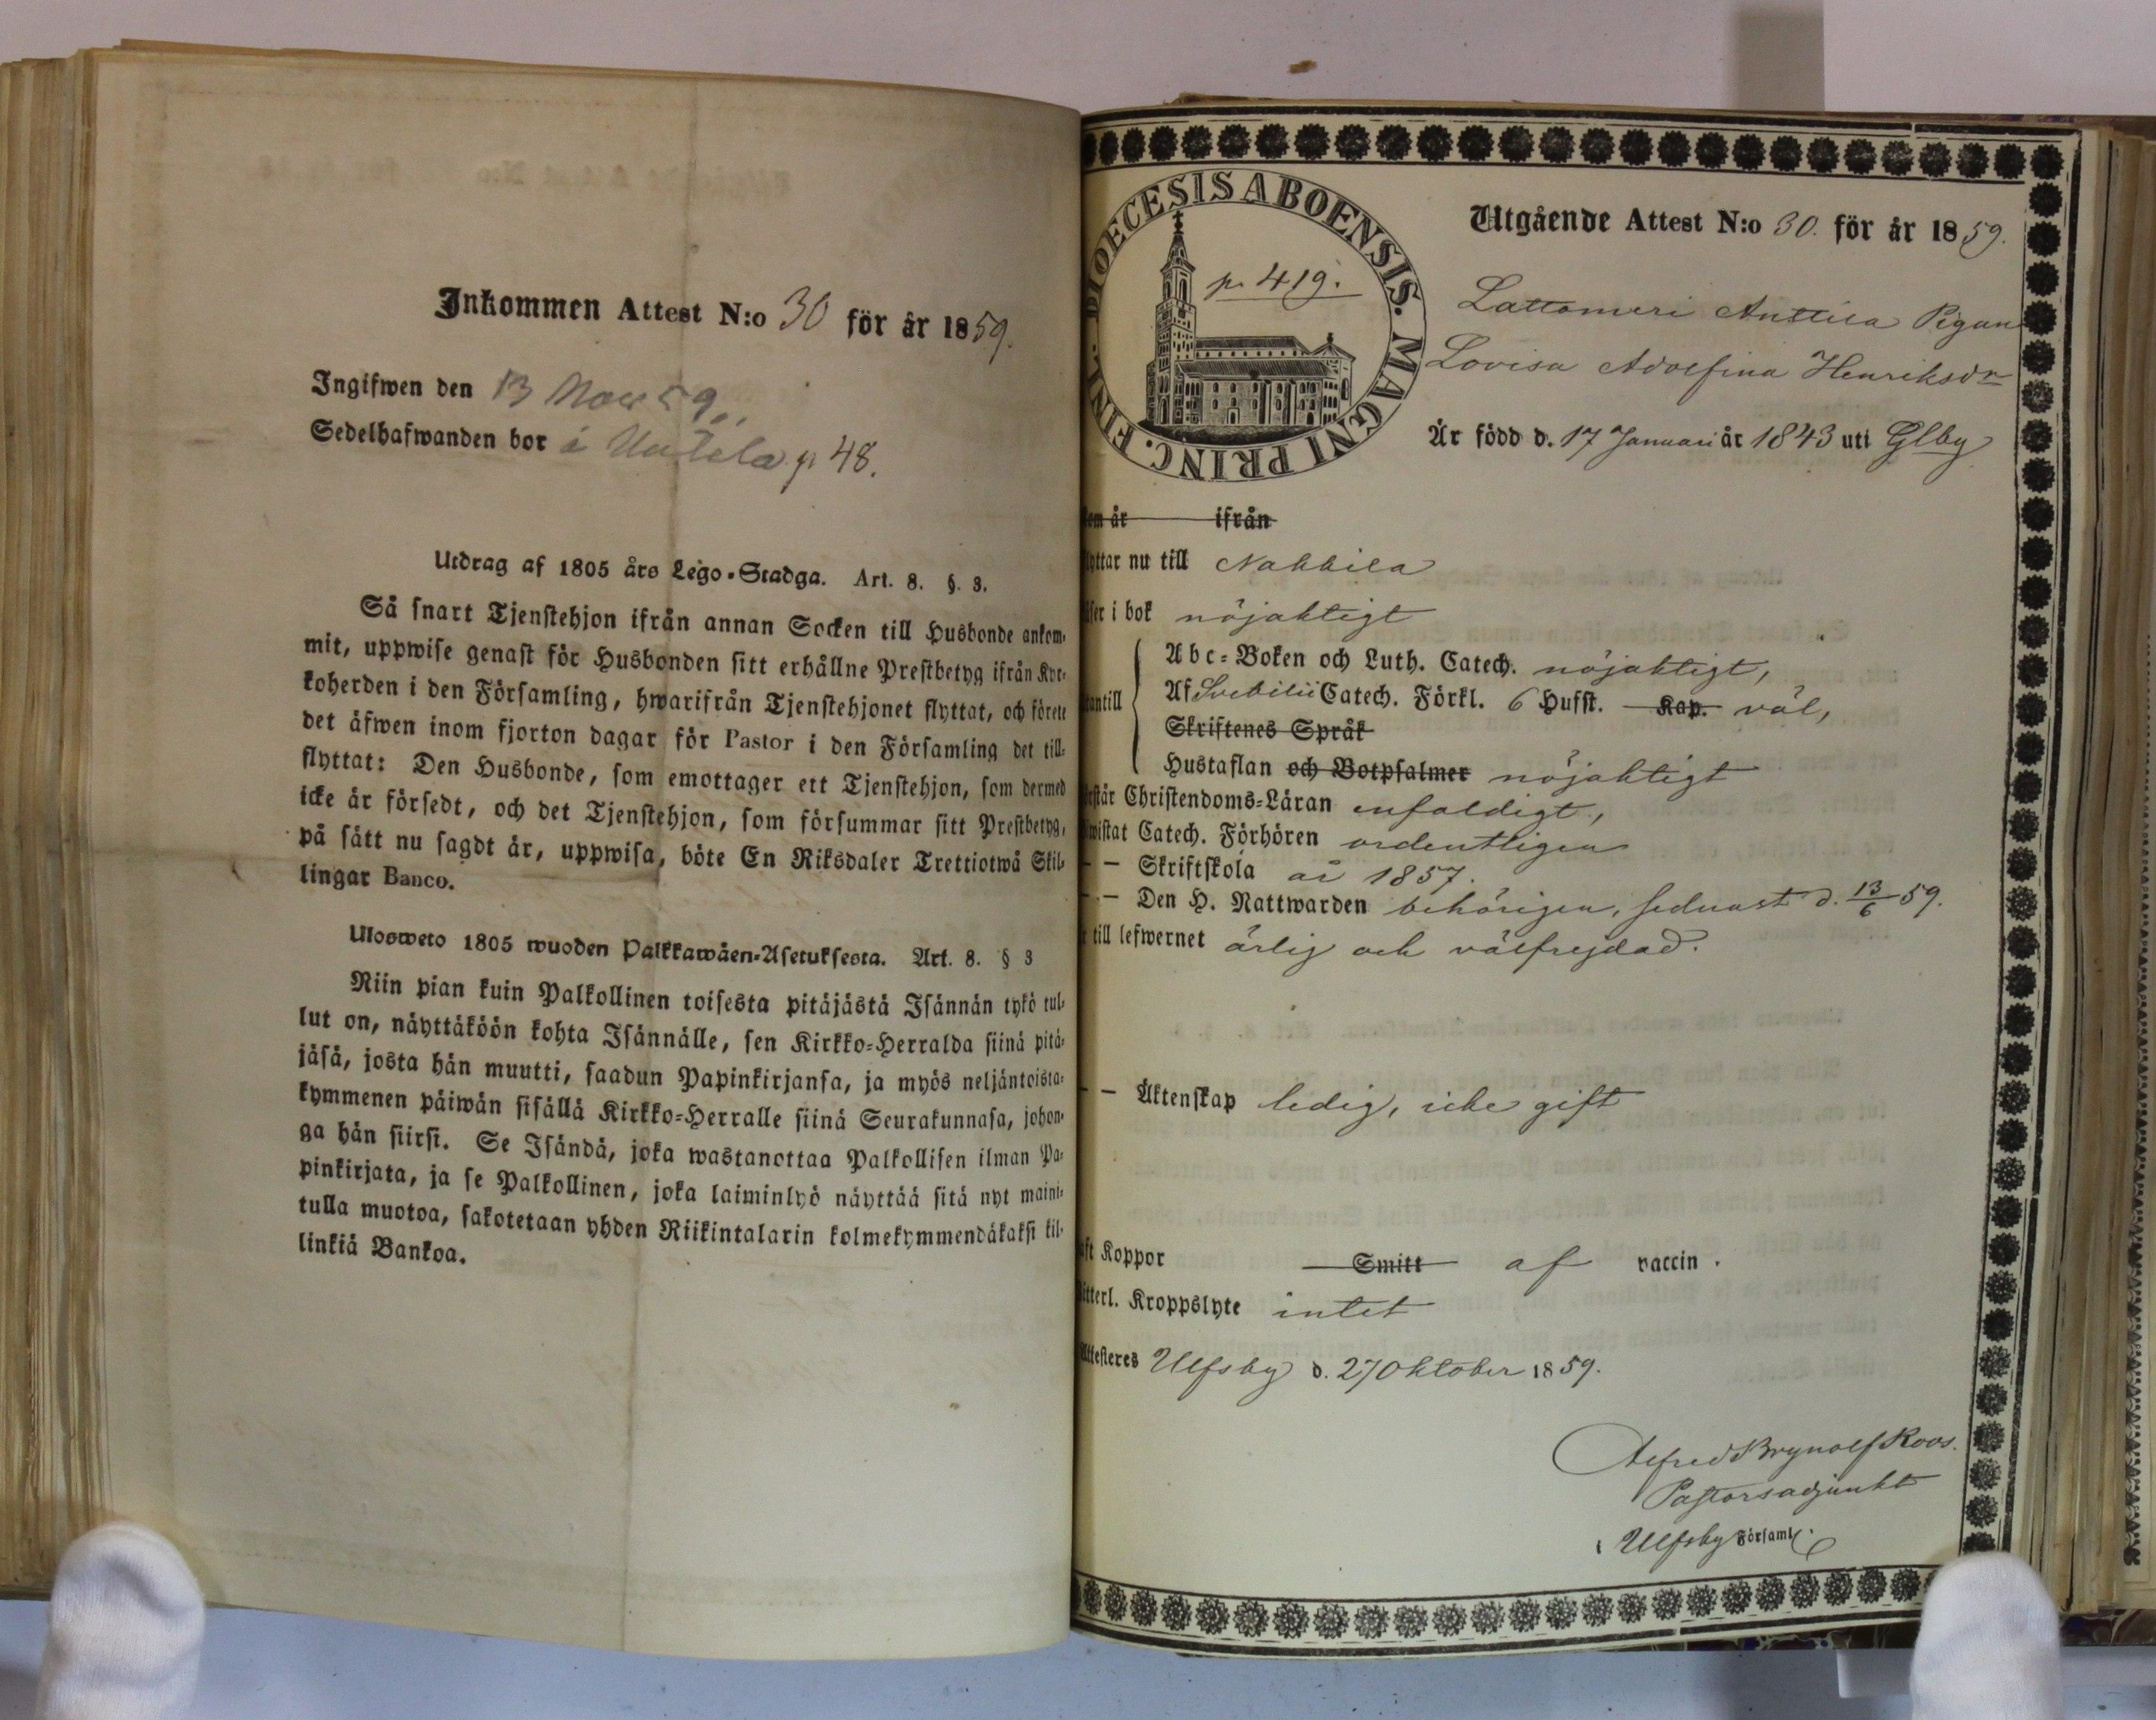 Inkommen Attest N:o 30 för år 1859.
Ingifwen den 13 Nov 59
Sedelhafwanden bor i Uutela p 48.
Utdrag af 1805 års Lego-Stadga. Art. 8. §. 3.
Så snart Tjenstehjon ifrån annan Socken till Husbonde ankom-
mit, uppwise genast för Husbonden sitt erhållne Prestbetyg ifrån Kyr-
koherden i den Församling, hwarifrån Tjenstehjonet flyttat, och förete
det äfwen inom fjorton dagar för Pastor i den Församling det till-
flyttat: Den Husbonde, som emottager ett Tjenstehjon, som dermed
icke är försedt, och det Tjenstehjon, som försummar sitt Prestbetyg,
på sätt nu sagdt är, uppwisa, böte En Riksdaler Trettiotwå Skil-
lingar Banco.
Ulosweto 1805 wuoden Palkkawäen-Asetuksesta. Art. 8. § 3
Niin pian kuin Palkollinen toisesta pitäjästä Isännän tykö tul-
lut on, näyttäköön kohta Isännälle, sen Kirkko-Herralda siinä pitä-
jäsä, josta hän muutti, saadun Papinkirjansa, ja myös neljäntoista-
kymmenen päiwän sisällä Kirkko-Herralle siinä Seurakunnasa, johon-
ga hän siirsi. Se Isändä, joka wastanottaa Palkollisen ilman Pa-
pinkirjata, ja se Palkollinen, joka laiminlyö näyttää sitä nyt maini-
tulla muotoa, sakotetaan yhden Riikintalarin kolmekymmendäkaksi kil-
linkiä Bankoa.
DIOECESIS ABOENSIS. MAGNI PRINC. FINL.
p. 419.
Utgående Attest N:o 30. för år 1859.
Lattomeri Anttila Pigan
Lovisa Adolfina Henriksdr
Är född d. 17 Januari år 1843 uti Glby
kom år ifrån
flyttar nu till Nakkila
läser i bok nöjaktigt
Abc-Boken och Luth. Catech. nöjaktigt,
utantill Af Svebilii Catech. Förkl. 6 Hufst. Kap. väl,
Skriftenes Språk
Hustaflan och Botpsalmer nöjaktigt
förstår Christendoms-Läran enfaldigt,
biwistat Catech. Förhören ordentligen
— — Skriftskola år 1857.
— — Den H. Nattwarden behörigen, sednast d. 13/6 59.
är till lefwernet ärlig och välfrejdad.
— — Äktenskap ledig, icke gift
haft Koppor Smitt af vaccin.
Witterl. Kroppslyte intet
Attesteres Ulfsby d. 27 Oktober 1859.
Alfred Brynolf Roos.
Pastorsadjunkt
i Ulfsby Församl.